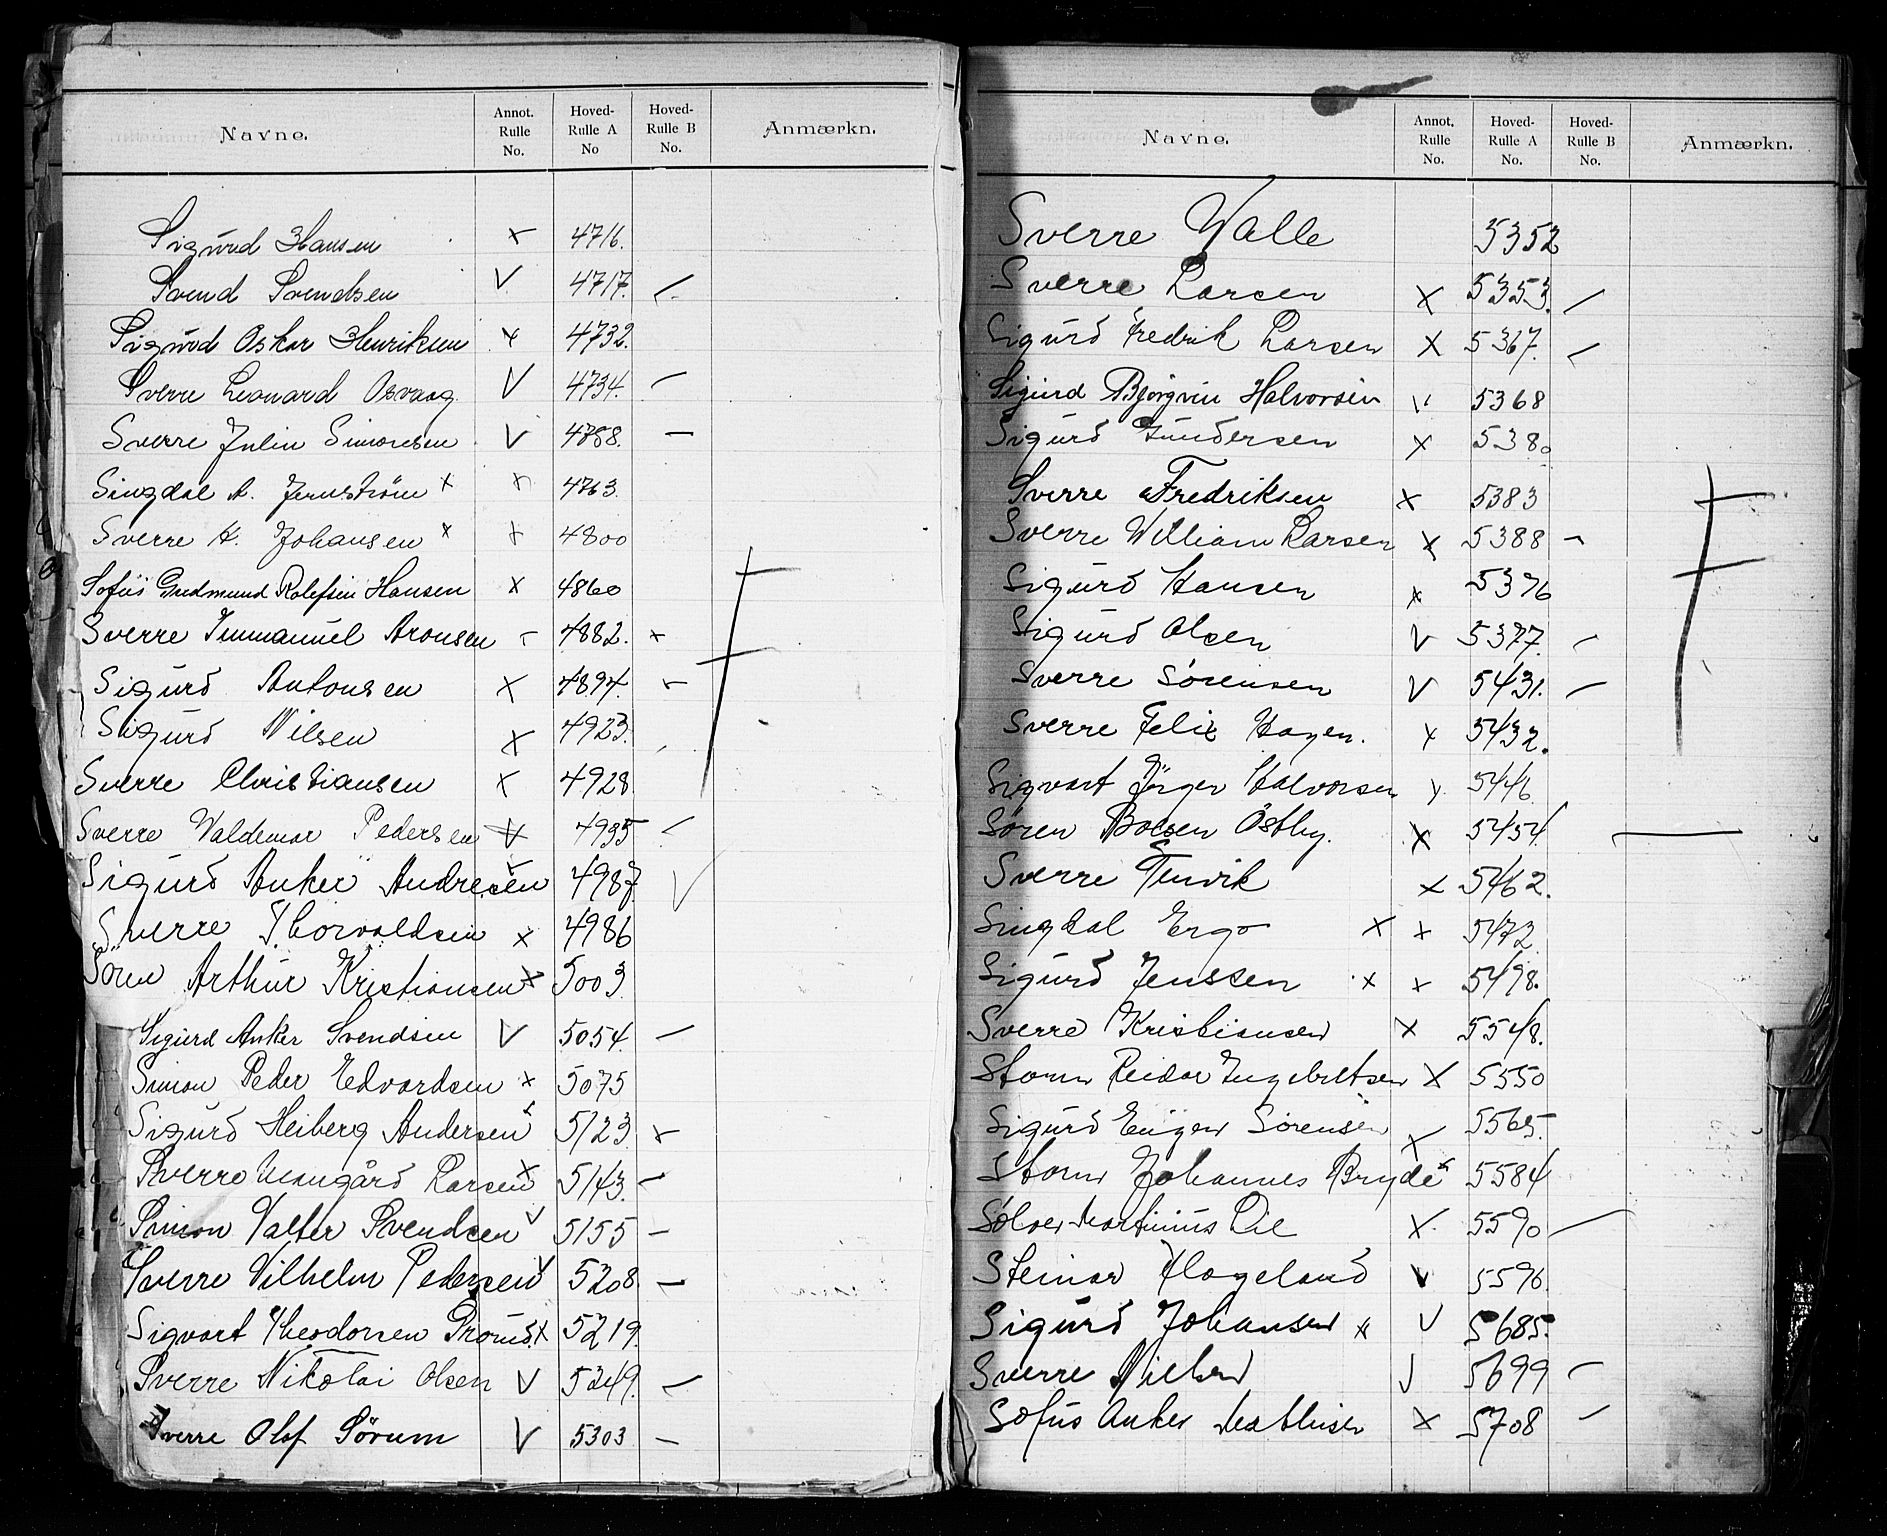 Navne. Annot. Rulle No. Hoved-Rulle A No Hoved-Rulle B No. Anmærkn.
Sigurd Hansen × 4716.
Svend Svendsen V 4717. –
Sigurd Oskar Henriksen × 4732.
Sverre Leonard Osvaag V 4734. –
Sverre Julin Simonsen V 4758. –
Singdal A. Jernström × × 4763.
Sverre H. Johansen × × 4800
Sofus Gudmund Rolefsen Hansen × 4860
Sverre Immanuel Aronsen 4882. ×
Sigurd Antonsen × 4894. –
Sigurd Nilsen × 4923.
Sverre Christiansen × 4928.
Sverre Waldemar Pedersen V 4935 –
Sigurd Anker Andresen V 4987. V
Sverre Thorvaldsen × 4986
Sören Arthur Kristiansen × 5003.
Sigurd Anker Svendsen V 5054. –
Simon Peder Edvardsen × 5075
Sigurd Heiberg Andersen 5123. ×
Sverre Larsen × 5143. –
Simon Valter Svendsen V 5155 –
Sverre Vilhelm Pedersen V 5208. –
Sigvart Theodorsen × 5219.
Sverre Nikolai Olsen V 5249. –
Sverre Olof Sörum V 5303 –
Navne. Annot. Rulle No. Hoved-Rulle A No. Hoved-Rulle B No. Anmærkn.
Sverre Walle 5352
Sverre Larsen × 5353. –
Sigurd Fredrik Larsen × 5367. –
Sigurd Bjørgvin Halvorsen 5368
Sigurd Gundersen × 5380
Sverre Fredriksen × 5383
Sverre William Larsen × 5388 –
Sigurd Hansen × 5376
Sigurd Olsen V 5377. –
Sverre Sörensen V 5431. –
Sverre Felix Hagen. × 5432.
Sigvart Jörgen Halvorsen × 5446.
Søren Boesen Östby. × 5454.
Sverre Tenvik × 5462.
Singdal Ergo × × 5472.
Sigurd Jenssen × × 5498.
Sverre Kristiansen × 5548.
Storm Reidar Ingebretsen × 5550
Sigurd Eugen Sörensen × 5565.
Storm Johannes Bryde × 5584
Sølver Martinius Lie × 5590 –
Steinar Hageland V 5596.
Sigurd Johansen × V 5685.
Sverre Nielsen V 5699 –
Sofus Anker Mathisen × 5708 –